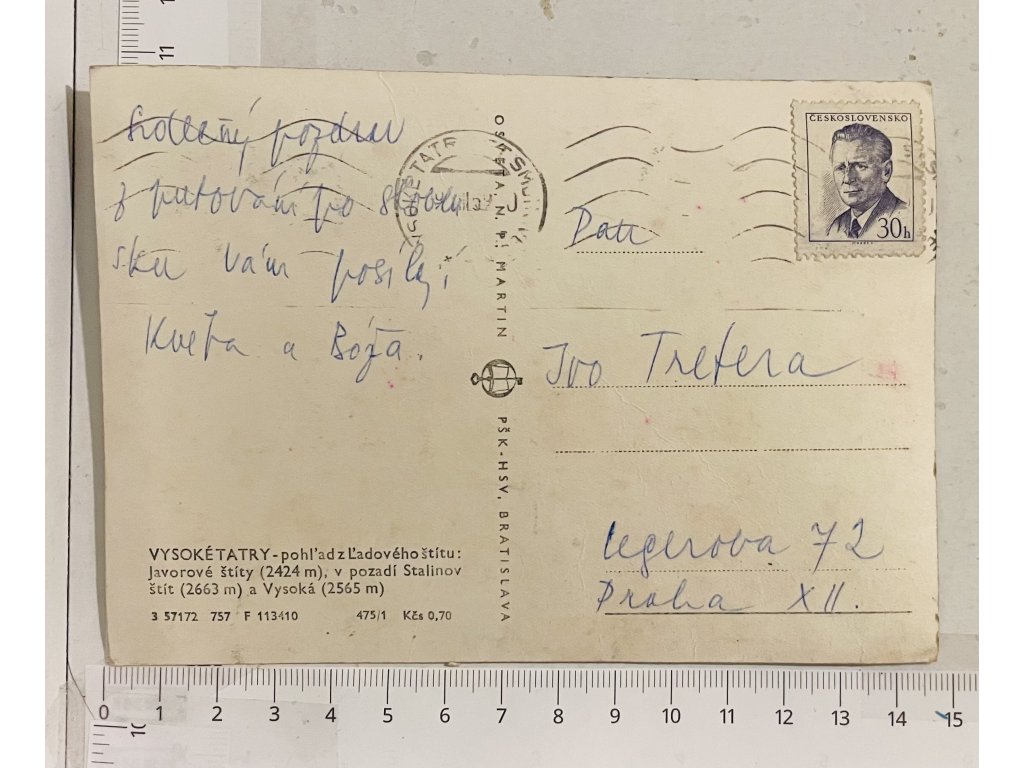 Srdečný pozdrav
z putování po Sloven
sku vám posílají
Květa a Bóža.
OSVETA N. P. MARTIN
PŠK-HSV, BRATISLAVA
ČESKOSLOVENSKO
30h
Pan
Ivo Tretera
Legerova 72
Praha XII.
VYSOKÉ TATRY - pohľad z Ľadového štítu:
Javorové štíty (2424 m), v pozadí Stalinov
štít (2663 m) a Vysoká (2565 m)
3 57172 757 F 113410 475/1 Kčs 0,70
11
0 1 2 3 4 5 6 7 8 9 10 11 12 13 14 15
10